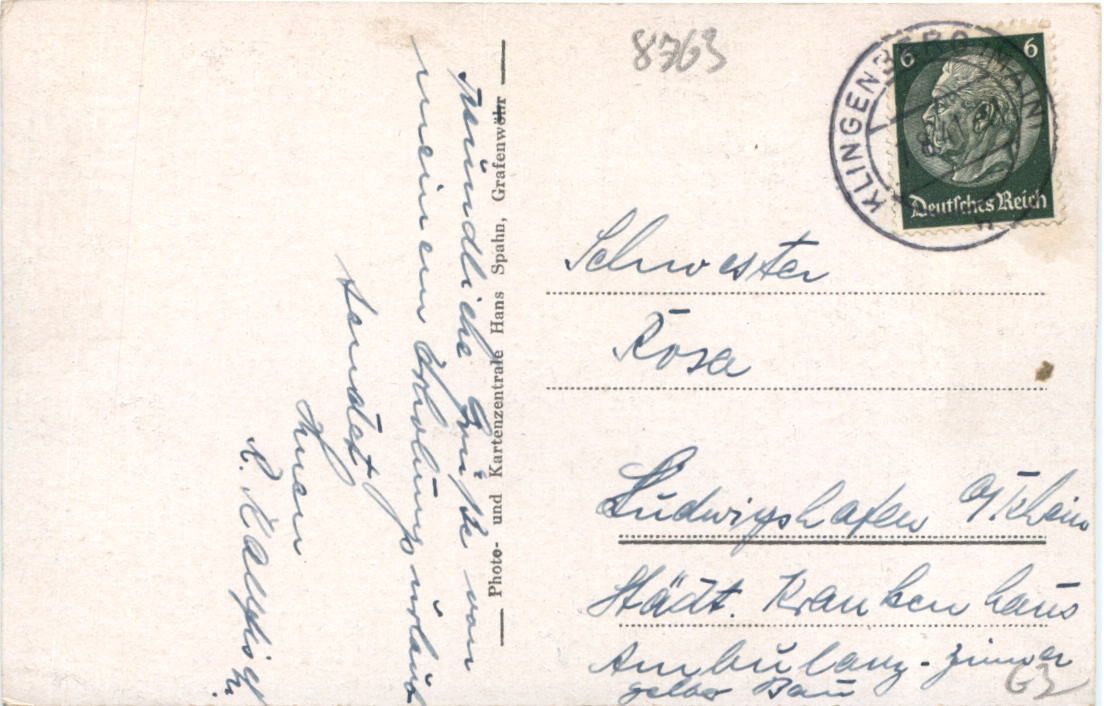 8763
KLINGENBERG (MAIN)
6 6
Deutsches Reich
Freundliche Grüße von
meinem Erholungsurlaub
sendet
Ihnen
R.
Photo- und Kartenzentrale Hans Spahn, Grafenwöhr
Schwester
Rosa
Ludwigshafen a/Rhein
Städt. Krankenhaus
Ambulanz-Zimmer
Bau
63